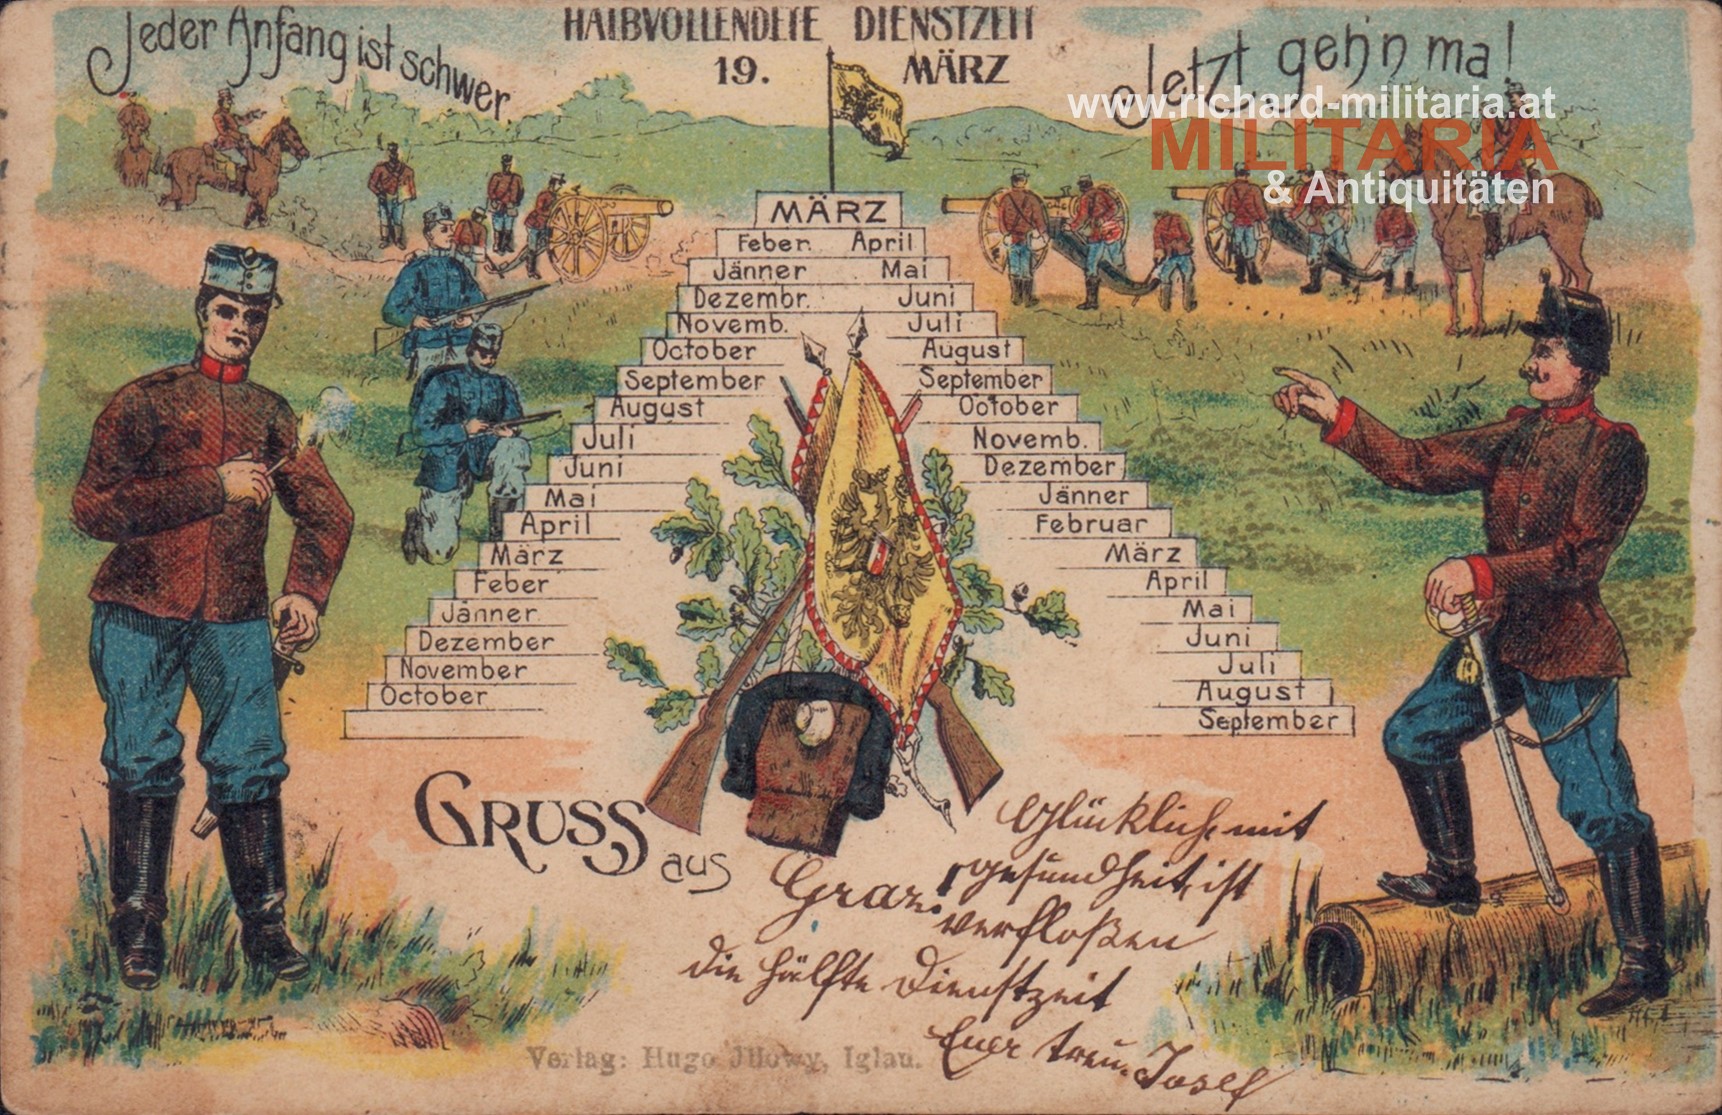 Jeder Anfang ist schwer.
HALBVOLLENDETE DIENSTZEIT
19. MÄRZ
Jetzt geh'n ma!
www.richard-militaria.at
MILITARIA
& Antiquitäten
MÄRZ
Feber April
Jänner Mai
Dezembr. Juni
Novemb. Juli
October August
September September
August October
Juli Novemb.
Juni Dezember
Mai Jänner
April Februar
März März
Feber April
Jänner Mai
Dezember Juni
November Juli
October August
September
GRUSS aus
Graz!
Glücklich mit
gesundheit, ist
verfloßen
die hälfte Dienstzeit
Euer treu. Josef
Verlag: Hugo Jllowy, Iglau.